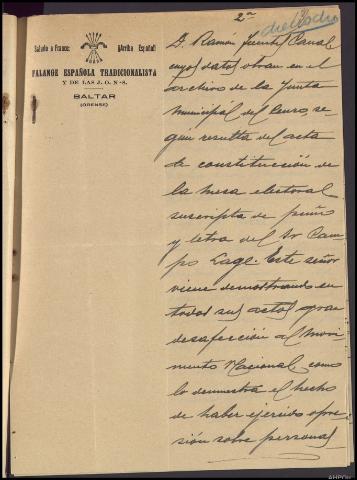 Saludo a Franco: ¡Arriba España!
FALANGE ESPAÑOLA TRADICIONALISTA
Y DE LAS J. O. N-S.
BALTAR
(ORENSE)
2ª
D. Ramón Fuentes Canal
cuyos datos obran en el
archivo de la Junta
Municipal del Censo, se-
gún resulta del acta
de constitucción de
la mesa electoral
suscripta de puño
y letra del Sr Cam-
po Lage. Este señor
viene demostrando en
todos sus actos gran
desafección al Movi-
miento Nacional como
lo demuestra el hecho
de haber ejercido opre-
sión sobre personas
AHPOu